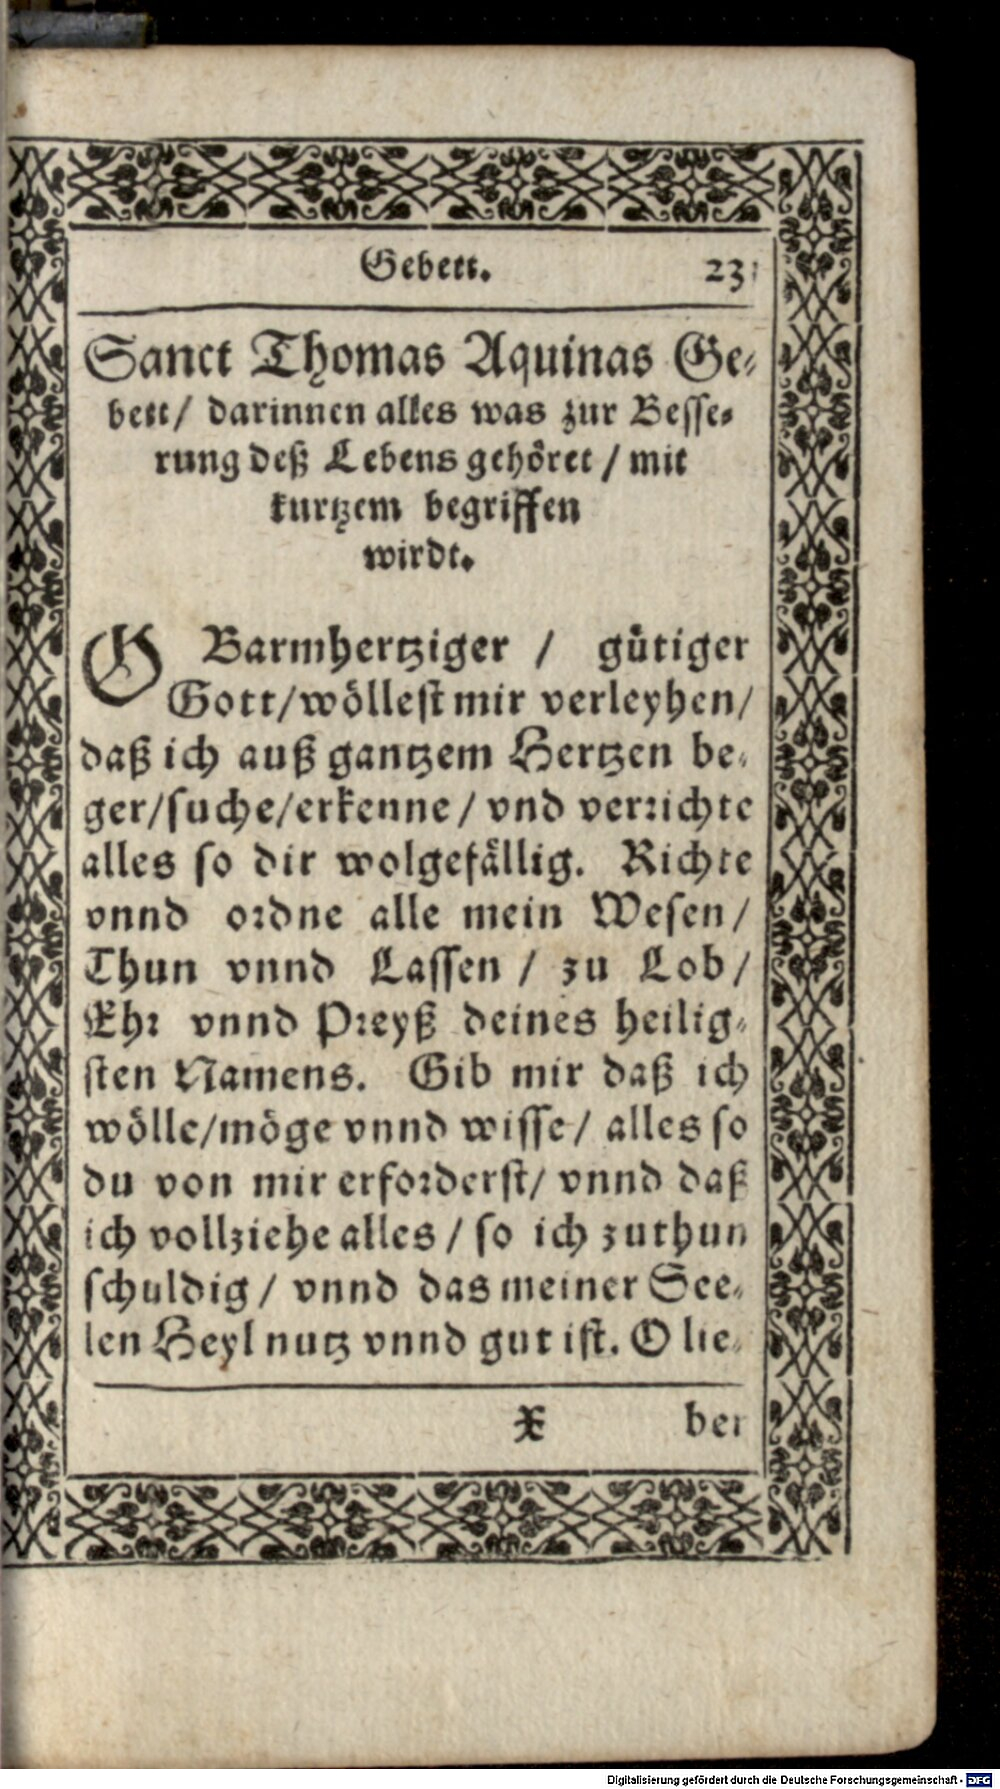 Gebett. 23
Sanct Thomas Aquinas Ge-
bett/ darinnen alles was zur Besse-
rung deß Lebens gehöret / mit
kurtzem begriffen
wirdt.
O Barmhertziger / gütiger
Gott/ wöllest mir verleyhen/
daß ich auß gantzem Hertzen be-
ger/suche/erkenne / vnd verrichte
alles so dir wolgefällig. Richte
vnnd ordne alle mein Wesen/
Thun vnnd Lassen / zu Lob/
Ehr vnnd Preyß deines heilig-
sten Namens. Gib mir daß ich
wölle/möge vnnd wisse/ alles so
du von mir erforderst/ vnnd daß
ich vollziehe alles / so ich zuthun
schuldig / vnnd das meiner See-
len Heyl nutz vnnd gut ist. O lie-
X ber
Digitalisierung gefördert durch die Deutsche Forschungsgemeinschaft - DFG